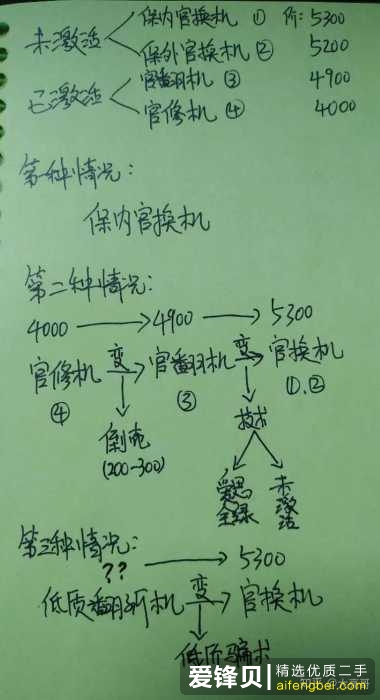 未激活 保内官换机 ① 价: 5300
保外官换机 ② 5200
已激活 官翻机 ③ 4900
官修机 ④ 4000
第一种情况:
保内官换机
第二种情况:
4000 → 4900 → 5300
官修机 变 官翻机 变 官换机
④ ③ ①.②
倒壳 技术
(200-300)
爱思全绿 未激活
第三种情况:
?? → 5300
低质翻新机 变 官换机
低质骗术
爱锋贝 精选优质二手
aifengbei.com